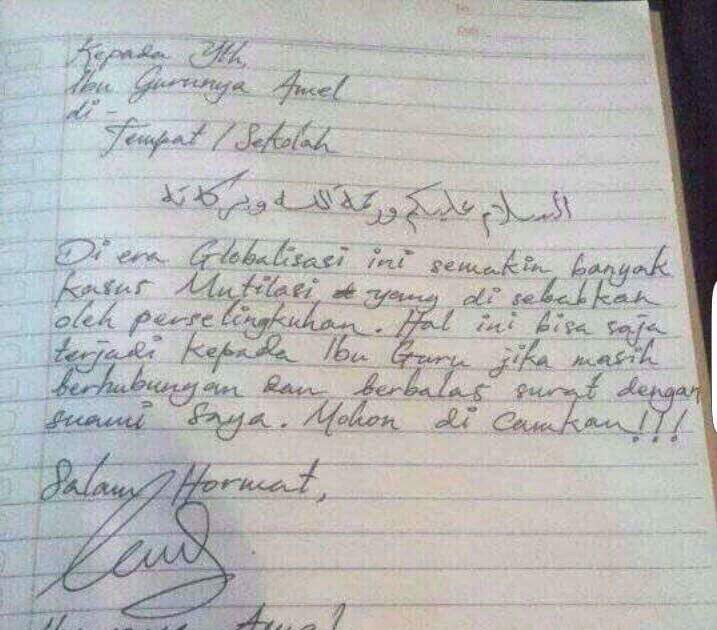 Kepada Yth,
Ibu Gurunya Amel
di -
Tempat / Sekolah
السلام عليكم ورحمة الله وبركاته
Di era Globalisasi ini semakin banyak
kasus Mutilasi yang di sebabkan
oleh perselingkuhan. Hal ini bisa saja
terjadi kepada Ibu Guru jika masih
berhubungan dan berbalas surat dengan
suami Saya. Mohon di camkan!!!
Salam Hormat,
Amel